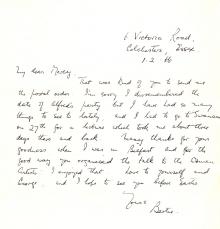 6 Victoria Road,
Colchester, Essex
1.2.66
My dear Mercy,
That was kind of you to send me
the postal order. I'm sorry I disremembered the
date of Alfred's party but I have had so many
things to see to lately and I had to go to Swansea
on 27th for a lecture which took me about three
days there and back. Many thanks for your
goodness when I was in Belfast and for the
good way you organised the talk to the
Artists. I enjoyed that. Love to yourself and
George. and I hope to see you before
Yours